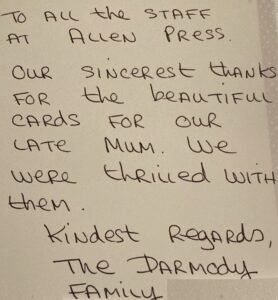 To All the STAFF
AT ALLEN PRESS.
OUR SINCEREST thanks
FOR the beautiful
CARDS FOR OUR
LATE MUM. WE
WERE thrilled WITH
them.
Kindest Regards,
The DARMODY
FAMILY